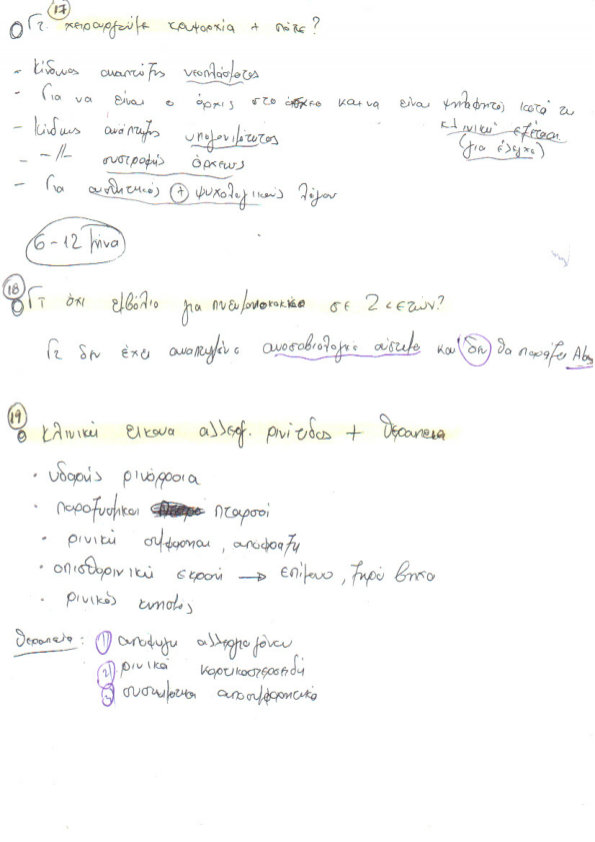 17
Γτ χειρουργούμε κρυψορχία + πότε?
- Κίνδυνος ανάπτυξης νεοπλάσματος
- Για να είναι ο όρχις στο όσχεο και να είναι ψηλαφητός κατά την
κλινική εξέταση
(για έλεγχο)
- Κίνδυνος ανάπτυξης υπογονιμότητας
- -//- συστροφής όρχεως
- Για αισθητικούς + ψυχολογικούς λόγους
6-12 μήνα
18
Γτ όχι εμβόλιο για πνευμονιοκοκκο σε 2 ετών?
Γτ δεν έχει αναπτυγμένο ανοσοβιολογικό σύστημα και δεν θα παράξει Abs
19
Κλινική εικόνα αλλεργ. ρινίτιδας + θεραπεία
· υδαρής ρινόρροια
· παροξυσμικοί πταρμοί
· ρινική συμφόρηση, απόφραξη
· οπισθορινική εκροή → επίμονο, ξηρό βήχα
· ρινικός κνησμός
θεραπεία: 1 αποφυγή αλλεργιογόνων
2 ρινικά κορτικοστεροειδή
3 συστηματικά αποσυμφορητικά